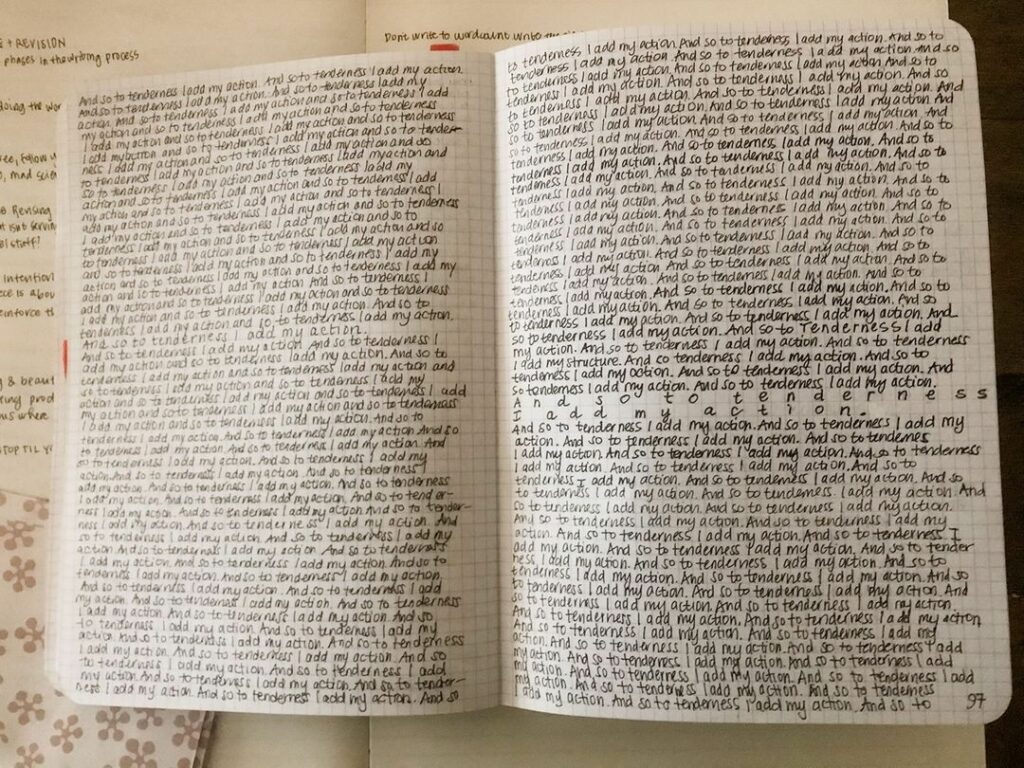 + REVISION
phases in the writing process
Don't write to wordcount write
doing the wor
Revising
intention
& beaut
us where
STOP TIL Y
And so to tenderness I add my action. And so to tenderness I add my action.
And so to tenderness I add my action. And so to tenderness I add my
action. And so to tenderness I add my action and so to tenderness I add
my action and so to tenderness I add my action and so to tenderness
I add my action and so to tenderness I add my action and so to tender-
ness I add my action and so to tenderness I add my action and so
to tenderness I add my action and so to tenderness I add my action and
so to tenderness I add my action and so to tenderness I add my
action and so to tenderness I add my action and so to tenderness I add
my action and so to tenderness I add my action and so to tenderness I
add my action and so to tenderness I add my action and so to tenderness
I add my action and so to tenderness I add my action and so to
tenderness I add my action and so to tenderness I add my action and so
to tenderness I add my action and so to tenderness I add my action
and so to tenderness I add my action and so to tenderness I add my
action and so to tenderness I add my action and so to tenderness
add my action and so to tenderness I add my action and so to tenderness
I add my action and so to tenderness I add my action. And so to
tenderness I add my action and so to tenderness I add my action.
And so to tenderness I add my action.
And so to tenderness I add my action. And so to tenderness I
add my action and so to tenderness I add my action. And so to
tenderness I add my action and so to tenderness I add my action and
so to tenderness I add my action and so to tenderness I add my
action and so to tenderness I add my action and so to tenderness I add
my action and so to tenderness I add my action and so to tenderness
I add my action. And so to tenderness I add my action. And so to
tenderness I add my action. And so to tenderness I add my action. And so
to tenderness I add my action. And so to tenderness I add my action. And
so to tenderness I add my action. And so to tenderness I add my
action. And so to tenderness I add my action. And so to tenderness I
add my action. And so to tenderness I add my action. And so to tenderness
I add my action. And so to tenderness I add my action. And so to tender-
ness I add my action. And so to tenderness I add my action. And so to tender-
ness I add my action. And so to tenderness I add my action. And
so to tenderness I add my action. And so to tenderness I add my
action. And so to tenderness I add my action. And so to tenderness
I add my action. And so to tenderness I add my action. And so to
tenderness I add my action. And so to tenderness I add my action.
And so to tenderness I add my action. And so to tenderness I add
my action. And so to tenderness I add my action. And so to tenderness
I add my action. And so to tenderness I add my action. And so
to tenderness I add my action. And so to tenderness I add my
action. And so to tenderness I add my action. And so to tenderness
I add my action. And so to tenderness I add my action. And so
to tenderness I add my action. And so to tenderness I add
my action. And so to tenderness I add my action. And so to tender-
ness I add my action. And so to tenderness I add my action. And so
to tenderness I add my action. And so to tenderness I add my action. And so to
tenderness I add my action. And so to tenderness I add my action. And so
to tenderness I add my action. And so to tenderness I add my action. And so to
tenderness I add my action. And so to tenderness I add my action. And
so to tenderness I add my action. And so to tenderness I add my action. And
so to tenderness I add my action. And so to tenderness I add my action. And so
to tenderness I add my action. And so to tenderness I add my action. And so to
tenderness I add my action. And so to tenderness I add my action. And so to
tenderness I add my action. And so to tenderness I add my action. And so to
tenderness I add my action. And so to tenderness I add my action. And so to
tenderness I add my action. And so to tenderness I add my action. And so to
tenderness I add my action. And so to tenderness I add my action. And so to
tenderness I add my action. And so to tenderness I add my action. And so
to tenderness I add my action. And so to tenderness I add my action. And
so to tenderness I add my action. And so to Tenderness I add
my action. And so to tenderness I add my action. And so to tenderness
I add my structure. And so to tenderness I add my action. And so to
tenderness I add my action. And so to tenderness I add my action. And
so to tenderness I add my action. And so to tenderness I add my action.
And so to tenderness
I add my action.
And so to tenderness I add my action. And so to tenderness I add my
action. And so to tenderness I add my action. And so to tenderness
I add my action. And so to tenderness I add my action. And so to tenderness
I add my action. And so to tenderness I add my action. And so to
tenderness I add my action. And so to tenderness I add my action. And so
to tenderness I add my action. And so to tenderness. I add my action. And
so to tenderness I add my action. And so to tenderness I add my action.
And so to tenderness I add my action. And so to tenderness I add my
action. And so to tenderness I add my action. And so to tenderness I
add my action. And so to tenderness I add my action. And so to tender
ness I add my action. And so to tenderness I add my action. And so to
tenderness I add my action. And so to tenderness I add my action. And so
to tenderness I add my action. And so to tenderness I add my action. And
so to tenderness I add my action. And so to tenderness I add my action
And so to tenderness I add my action. And so to tenderness I add my action
And so to tenderness I add my action. And so to tenderness I add my
action. And so to tenderness I add my action. And so to tenderness I add
my action. And so to tenderness I add my action. And so to tenderness I add
my action. And so to tenderness I add my action. And so to tenderness I add
my action. And so to tenderness I add my action. And so to tenderness
I add my action. And so to tenderness I add my action. And so to
97